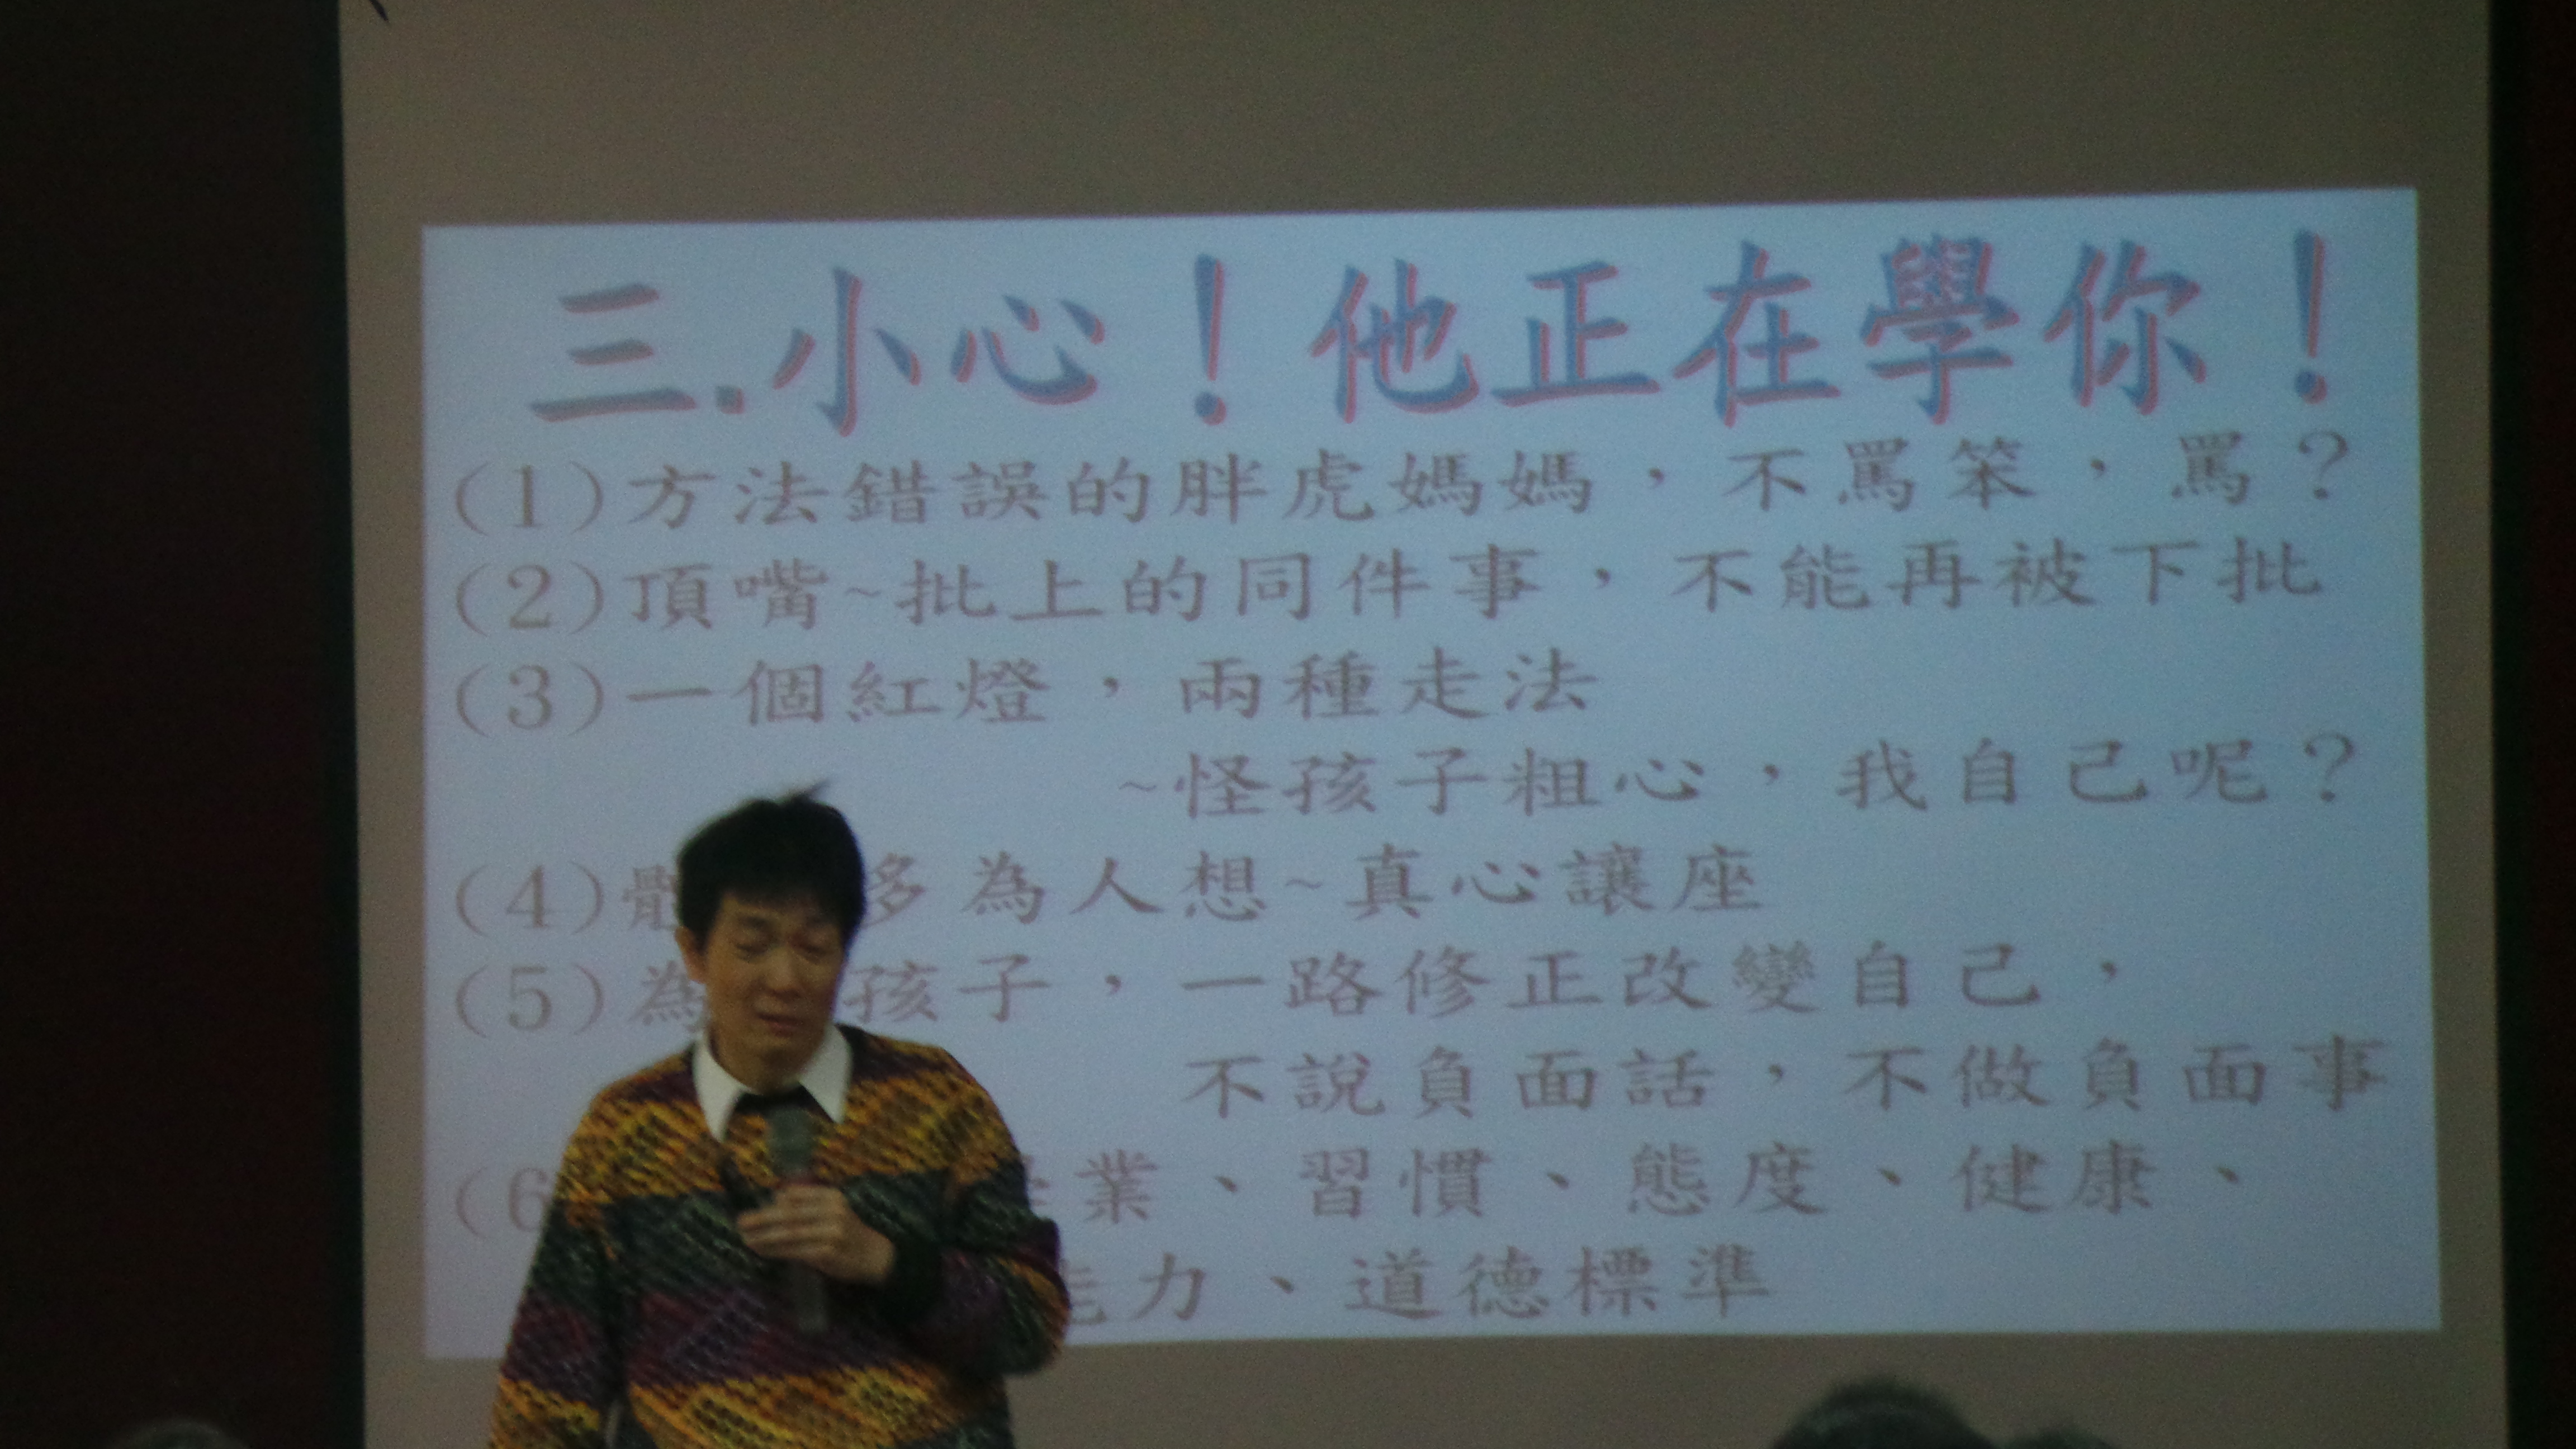 三.小心！他正在學你！
(1)方法錯誤的胖虎媽媽，不罵笨，罵？
(2)頂嘴~批上的同件事，不能再被下批
(3)一個紅燈，兩種走法
~怪孩子粗心，我自己呢？
(4) 多為人想~真心讓座
(5)為 孩子，一路修正改變自己，
不說負面話，不做負面事
(6 業、習慣、態度、健康、
力、道德標準